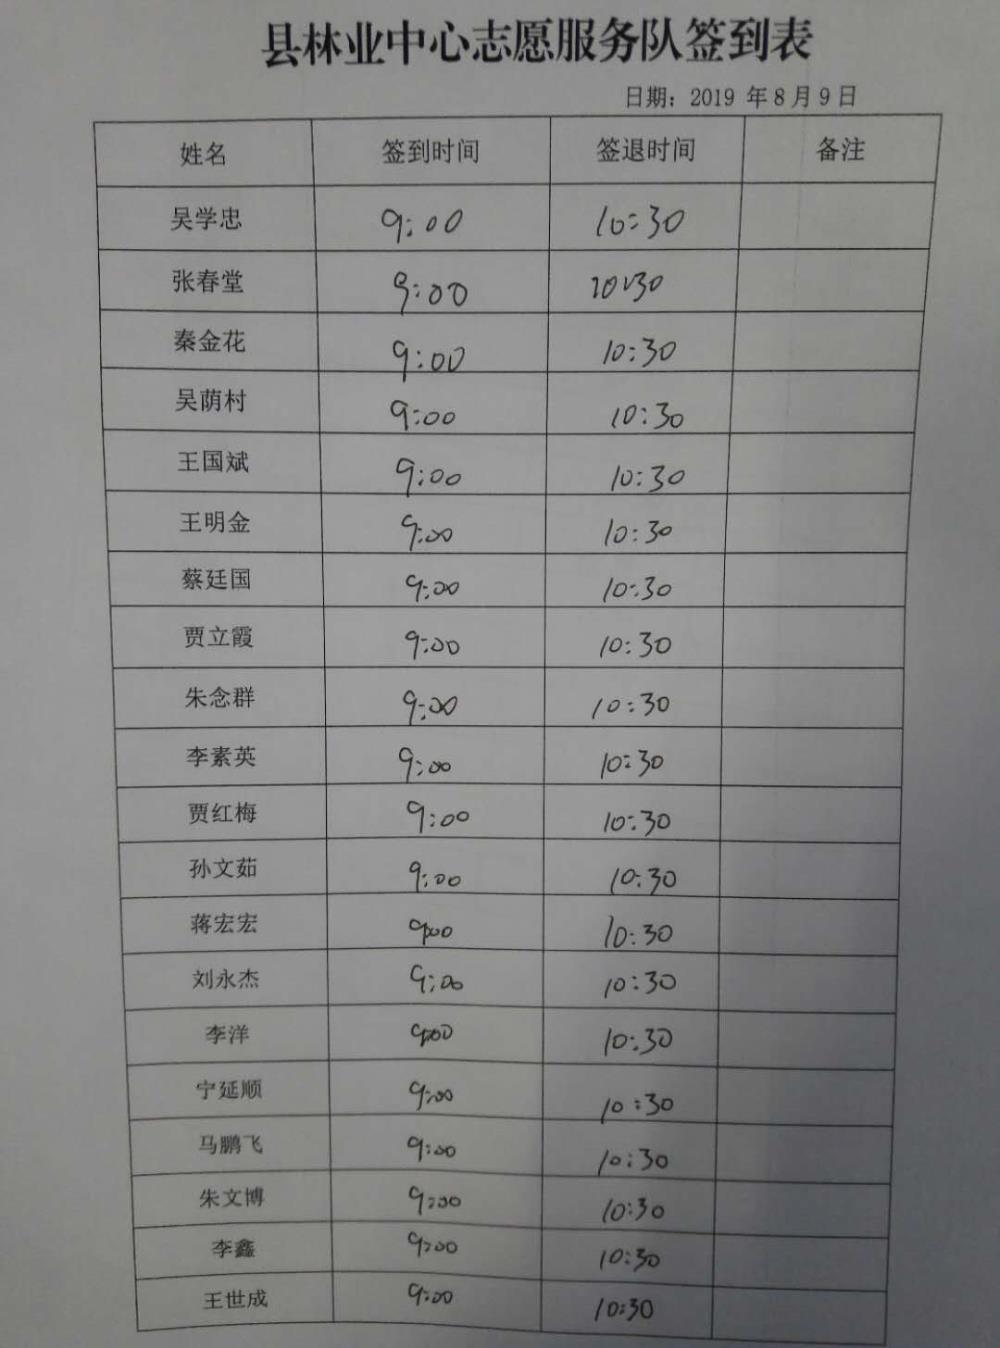 县林业中心志愿服务队签到表
日期：2019 年 8 月 9 日
姓名 签到时间 签退时间 备注
吴学忠 9:00 10:30
张春堂 9:00 10:30
秦金花 9:00 10:30
吴荫村 9:00 10:30
王国斌 9:00 10:30
王明金 9:00 10:30
蔡廷国 9:00 10:30
贾立霞 9:00 10:30
朱念群 9:00 10:30
李素英 9:00 10:30
贾红梅 9:00 10:30
孙文茹 9:00 10:30
蒋宏宏 9:00 10:30
刘永杰 9:00 10:30
李洋 9:00 10:30
宁延顺 9:00 10:30
马鹏飞 9:00 10:30
朱文博 9:00 10:30
李鑫 9:00 10:30
王世成 9:00 10:30